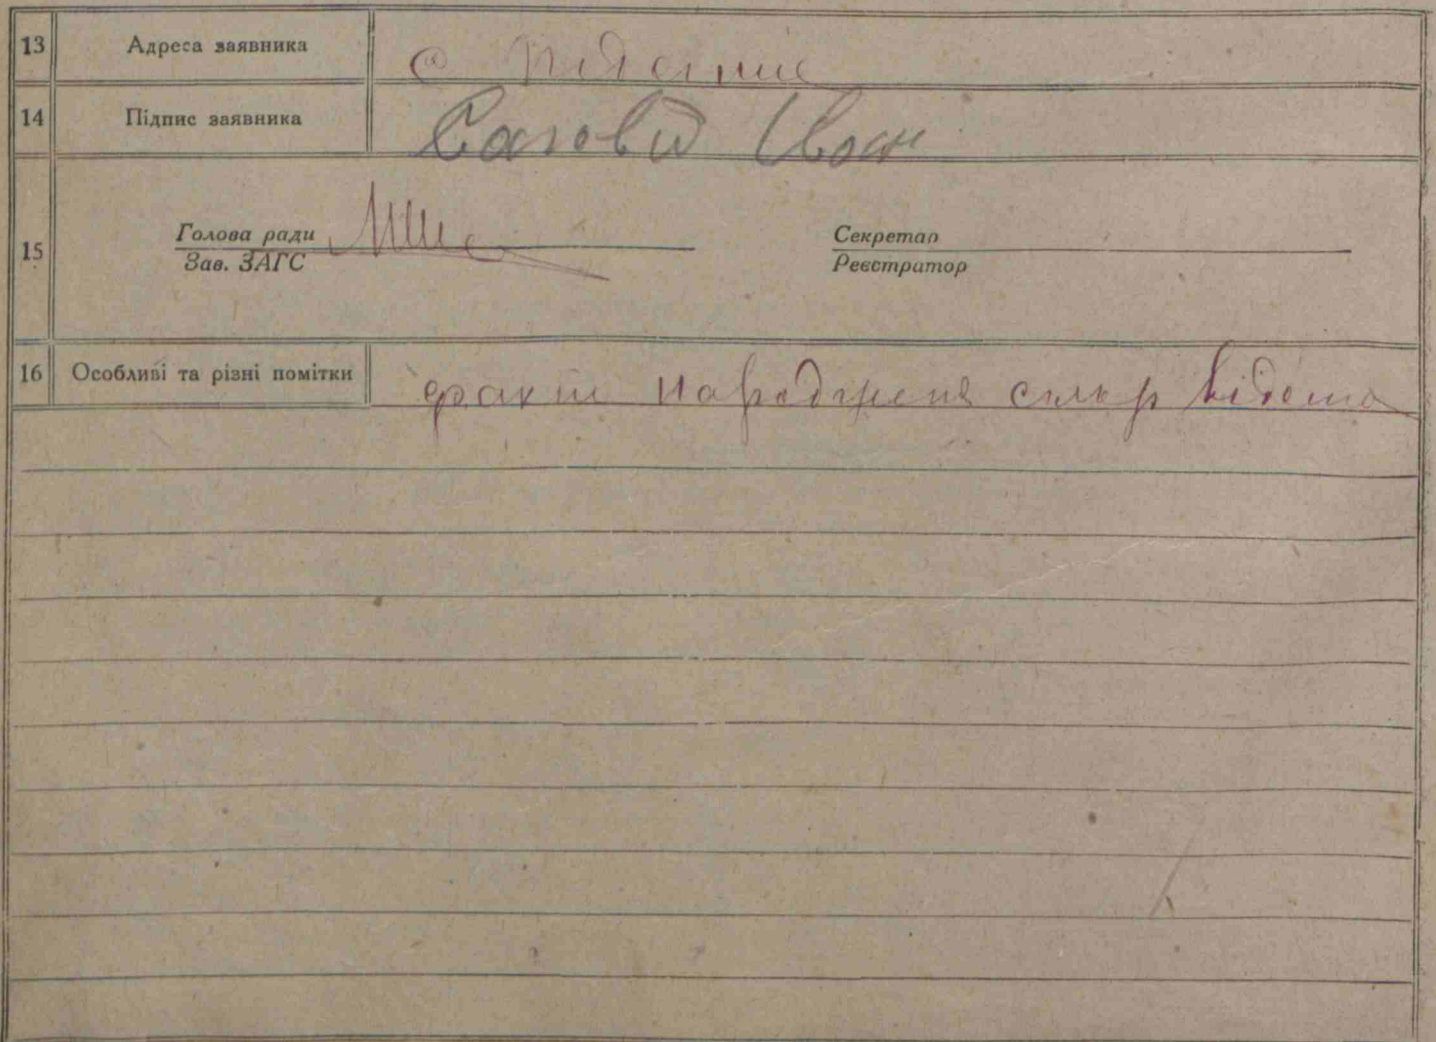 13 Адреса заявника с
14 Підпис заявника Іван
15 Голова ради
Зав. ЗАГС
Секретар
Реєстратор
16 Особливі та різні помітки факт народженя відома